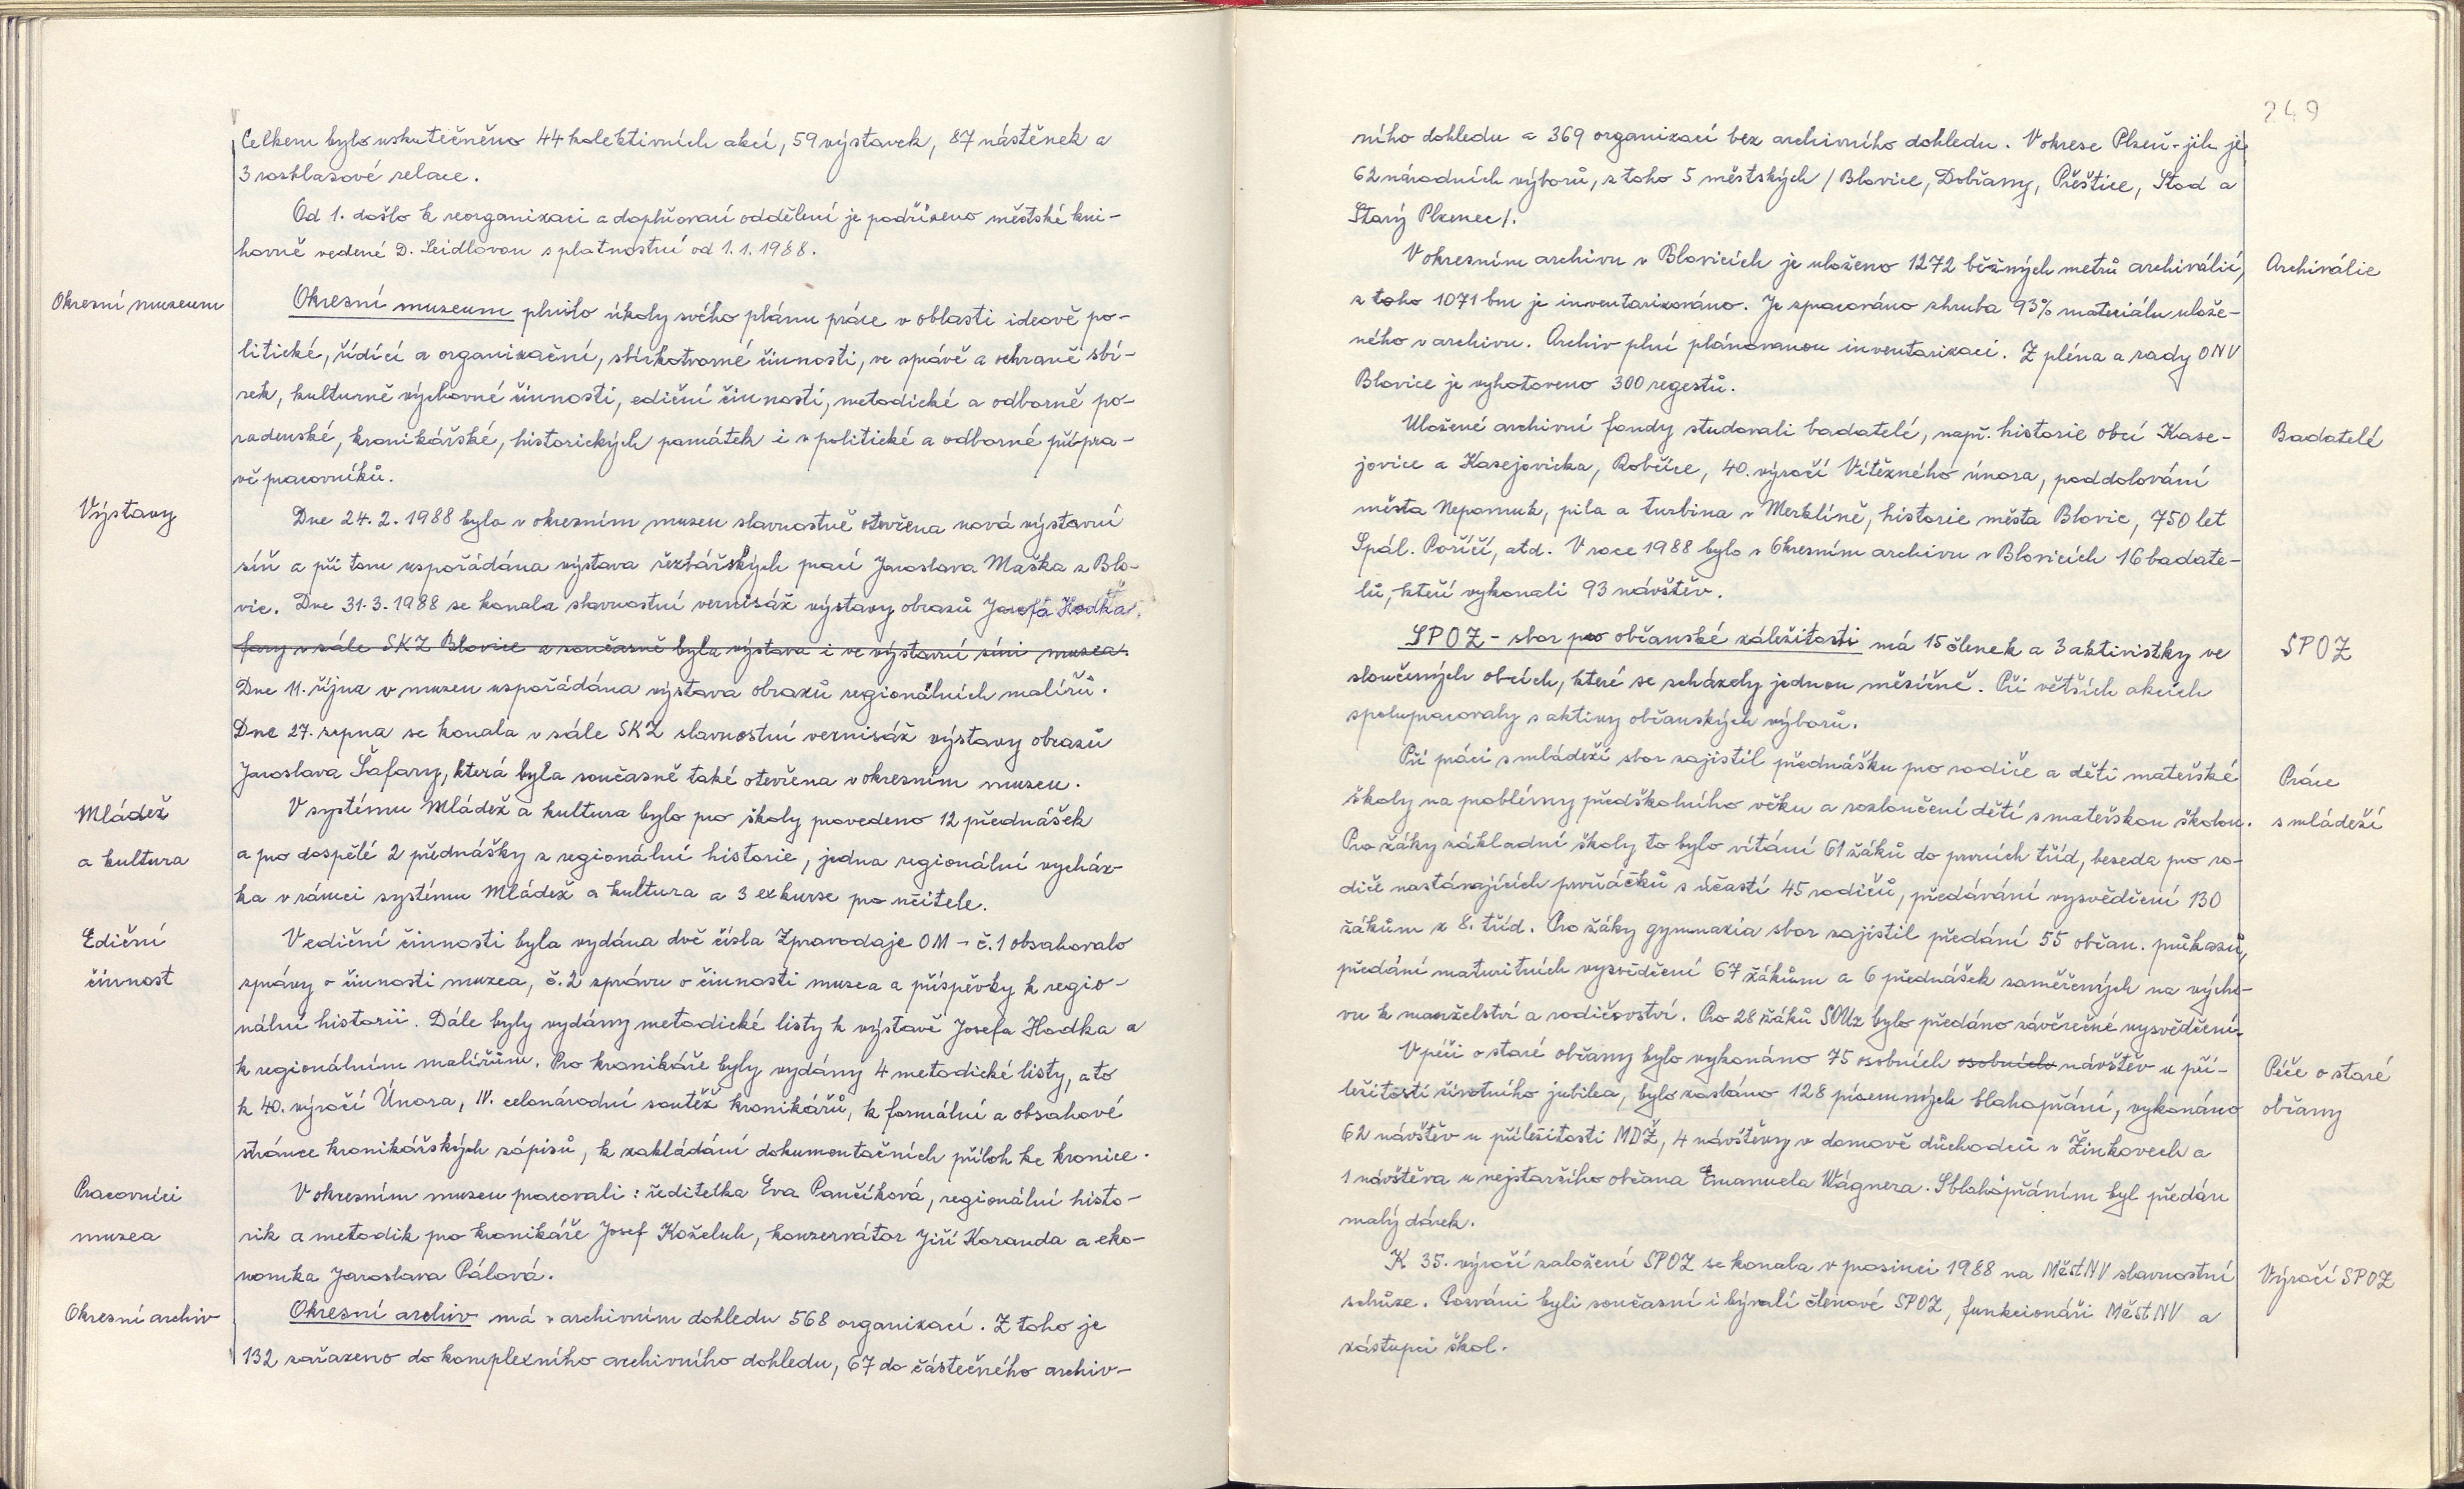 Celkem bylo uskutečněno 44 kolektivních akcí, 59 výstavek, 87 nástěnek a
3 rozhlasové relace.
Od 1. došlo k reorganizaci a doplňovaní oddělení je podřízeno městské kni-
hovně vedené D. Seidlovou s platnostní od 1.1.1988.
Okresní muzeum
Okresní museum plnilo úkoly svého plánu práce v oblasti ideově po-
litické, řídící a organizační, sbírkotvorné činnosti, ve správě a ochraně sbí-
rek, kulturně výchovné činnosti, ediční činnosti, metodické a odborně po-
radenské, kronikářské, historických památek i v politické a odborné přípra-
vě pracovníků.
Výstavy
Dne 24.2.1988 byla v okresním muzeu slavnostně otevřena nová výstavní
síň a při tom uspořádána výstava řezbářských prací Jaroslava Maška z Blo-
vic. Dne 31.3.1988 se konala slavnostní vernisáž výstavy obrazů Josefa Hodka.
fary v sále SKZ Blovice a současně byla výstava i ve výstavní síni muzea.
Dne 11. října v muzeu uspořádána výstava obrazů regionálních malířů.
Dne 27. srpna se konala v sále SKZ slavnostní vernisáž výstavy obrazů
Jaroslava Šafary, která byla současně také otevřena v okresním muzeu.
Mládež
a kultura
V systému Mládež a kultura bylo pro školy provedeno 12 přednášek
a pro dospělé 2 přednášky z regionální historie, jedna regionální vycház-
ka v rámci systému Mládež a kultura a 3 exkurse pro učitele.
Ediční
činnost
V ediční činnosti byla vydána dvě čísla Zpravodaje OM - č.1 obsahovalo
zprávy o činnosti muzea, č.2 zprávu o činnosti muzea a příspěvky k regio-
nální historii. Dále byly vydány metodické listy k výstavě Josefa Hodka a
k regionálním malířům. Pro kronikáře byly vydány 4 metodické listy, a to
k 40. výročí Února, IV. celonárodní soutěž kronikářů, k formální a obsahové
stránce kronikářských zápisů, k zakládání dokumentačních příloh ke kronice.
Pracovníci
muzea
V okresním muzeu pracovali: ředitelka Eva Pančíková, regionální histo-
rik a metodik pro kronikáře Josef Koželuh, konzervátor Jiří Koranda a eko-
nomka Jaroslava Pálová.
Okresní archiv
Okresní archiv má v archivním dohledu 568 organizací. Z toho je
132 zařazeno do komplexního archivního dohledu, 67 do částečného archiv-
249
ního dohledu a 369 organizací bez archivního dohledu. V okrese Plzeň-jih je
62 národních výborů, z toho 5 městských / Blovice, Dobřany, Přeštice, Stod a
Starý Plzenec/.
Archiválie
V okresním archivu v Blovicích je uloženo 1272 běžných metrů archiválií,
z toho 1071 bm je inventarizováno. Je zpracováno zhruba 93% materiálu ulože-
ného v archivu. Archiv plní plánovanou inventarizaci. Z pléna a rady ONV
Blovice je vyhotoveno 300 regestů.
Badatelé
Uložené archivní fondy studovali badatelé, např. historie obcí Kase-
jovice a Kasejovicka, Robčice, 40. výročí Vítězného února, poddolování
města Nepomuk, pila a turbina v Merklíně, historie města Blovic, 750 let
Spál. Poříčí, atd. V roce 1988 bylo v Okresním archivu v Blovicích 16 badate-
lů, kteří vykonali 93 návštěv.
SPOZ
SPOZ - sbor pro občanské záležitosti má 15 členek a 3 aktivistky ve
sloučených obcích, které se scházely jednou měsíčně. Při větších akcích
spolupracovaly s aktivy občanských výborů.
Práce
s mládeží
Při práci s mládeží sbor zajistil přednášku pro rodiče a děti mateřské
školy na problémy předškolního věku a rozloučení dětí s mateřskou školou.
Pro žáky základní školy to bylo vítání 61 žáků do prvních tříd, beseda pro ro-
diče nastávajících prvňáčků s účastí 45 rodičů, předávání vysvědčení 130
žákům z 8. tříd. Pro žáky gymnazia sbor zajistil předání 55 občan. průkazů,
předání maturitních vysvědčení 67 žákům a 6 přednášek zaměřených na výcho-
vu k manželství a rodičovství. Pro 28 žáků SOUz bylo předáno závěrečné vysvědčení.
Péče o staré
občany
V péči o staré občany bylo vykonáno 75 osobních osobních návštěv u pří-
ležitosti životního jubilea, bylo zasláno 128 písemných blahopřání, vykonáno
62 návštěv u příležitosti MDŽ, 4 návštěvy v domově důchodců v Žinkovech a
1 návštěva u nejstaršího občana Emanuela Wágnera. S blahopřáním byl předán
malý dárek.
Výročí SPOZ
K 35. výročí založení SPOZ se konala v prosinci 1988 na MěstNV slavnostní
schůze. Pozváni byli současní i bývalí členové SPOZ, funkcionáři MěstNV a
zástupci škol.